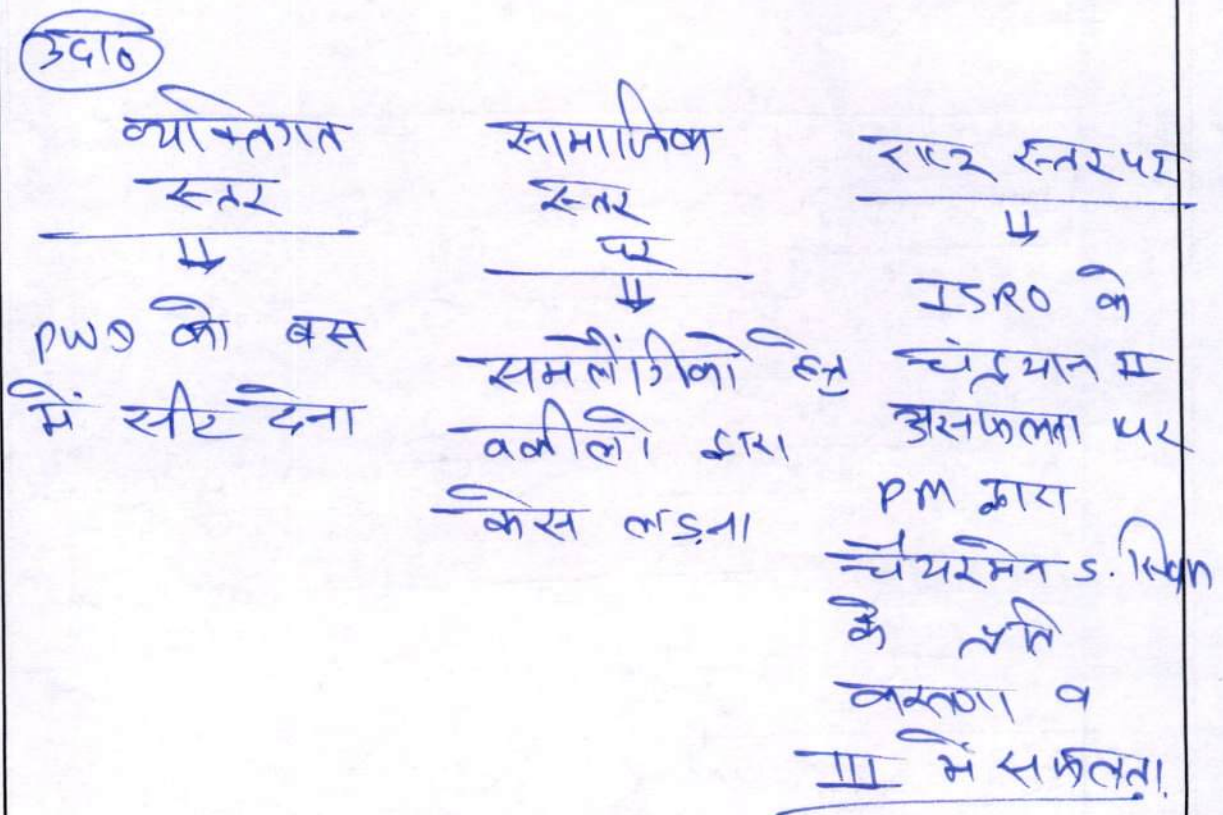 उदा०
व्यक्तिगत
स्तर
⇓
PWD को बस
में सीट देना
सामाजिक
स्तर
पर
⇓
समलैंगीको हेतु
वकीलो द्वारा
केस लड़ना
राष्ट्र स्तर पर
⇓
ISRO के
चंद्रयान II
असफलता पर
PM द्वारा
चैयरमेन S. सिवान
के प्रति
करुणा व
III में सफलता।